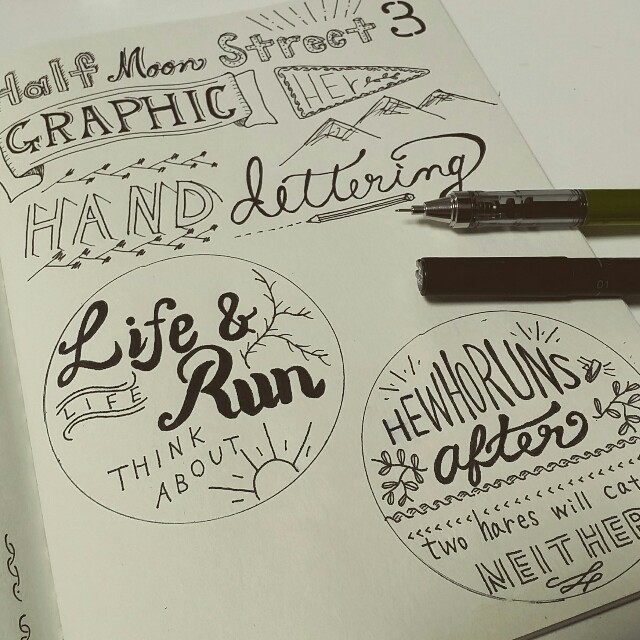 Half Moon Street 3
GRAPHIC
HER
HAND Lettering
Life &
Run
LIFE
THINK
ABOUT
HEWHORUNS
after
two hares will cat
NEITHER
01